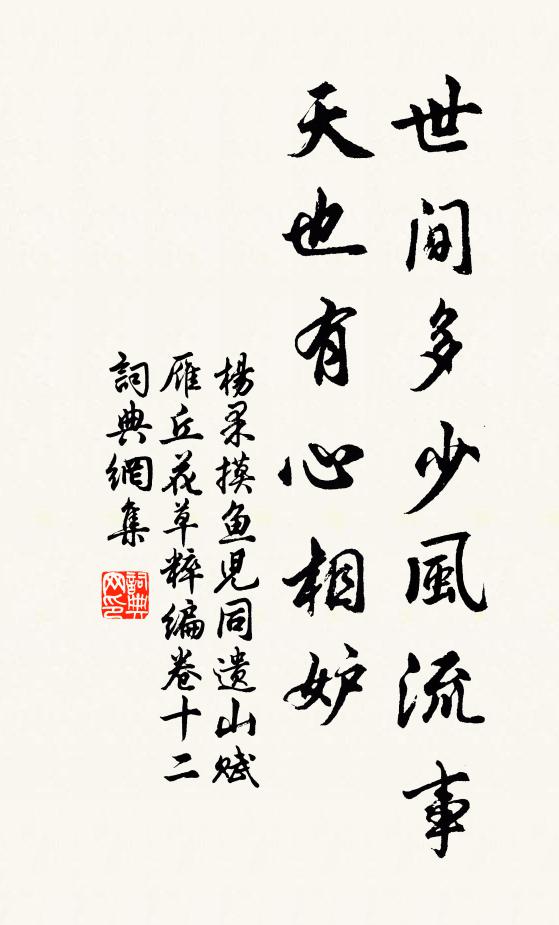 世间多少風流事
天也有心相妒
楊果摸鱼児同遗山赋
雁丘花草粹编卷十二
詞典網集
詞典
网印